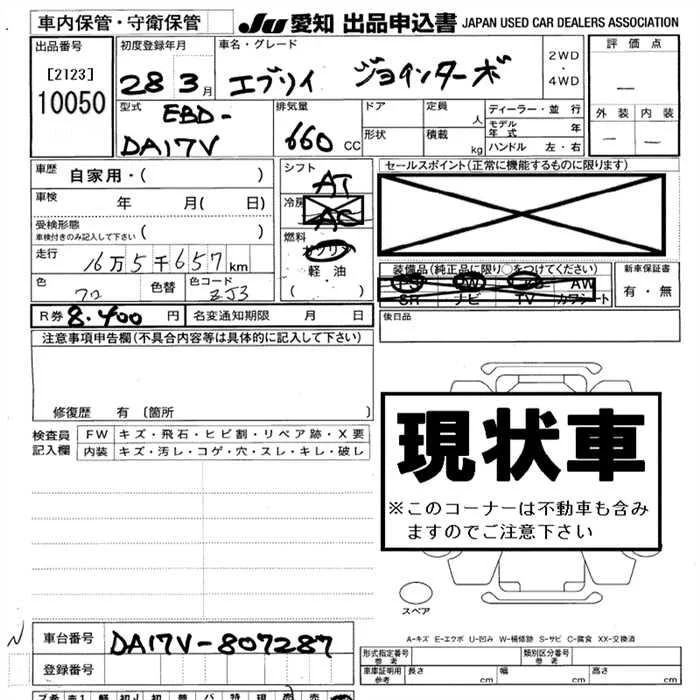 車内保管・守衛保管
JU 愛知 出品申込書 JAPAN USED CAR DEALERS ASSOCIATION
出品番号
[2123]
10050
初度登録年月
28 3月
車名・グレード
エブリイ ジョインターボ
2WD
・
4WD
評価点
—
外装 内装
— —
型式
EBD-
DA17V
排気量
660 CC
ドア
形状
定員 人
積載 kg
ディーラー・並 行
モデル
年式 年
ハンドル 左・右
車歴
自家用・( )
車検
年 月( 日)
受検形態
車検付きのみ記入して下さい ( )
走行
16万5千657km
色
色替
色コード
ZJ3
シフト
AT
冷房
AC
燃料
ガソリン
軽油
・
( )
セールスポイント(正常に機能するものに限ります)
装備品(純正品に限り○をつけてください)
PS PW AW
SR ナビ TV カワシート
新車保証書
有・無
後日品
R券 8.400 円
名変通知期限 月 日
注意事項申告欄(不具合内容等は具体的に記入して下さい)
修復歴 有〔箇所
検査員
記入欄
FW キズ・飛石・ヒビ割・リペア跡・X要
内装 キズ・汚レ・コゲ・穴・スレ・キレ・破レ
現状車
※このコーナーは不動車も含み
ますのでご注意下さい
スペア
A-キズ E-エクボ U-凹み W-補修跡 S-サビ C-腐食 XX-交換済
車台番号
DA17V-807287
登録番号
形式指定番号
参考
類別区分番号
参考
車庫証明用
参考
長さ cm
幅 cm
高さ cm